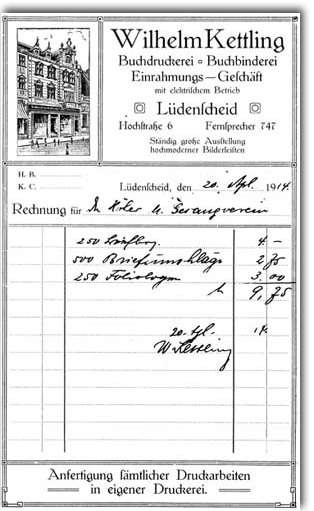 Wilhelm Kettling
Buchdruckerei ▫ Buchbinderei
Einrahmungs—Geſchäft
mit elektriſchem Betrieb
Lüdenſcheid
Hochſtraße 6 Fernſprecher 747
Ständig große Ausſtellung
hochmoderner Bilderleiſten
H. B.
K. C.
Lüdenſcheid, den 20. Apl. 1914.
Rechnung für
250 4.–
500 Briefumschläge 2 75
250 Foliobogen 3.00
9,75
20. Apl. 14.
W. Kettling
Anfertigung ſämtlicher Druckarbeiten
in eigener Druckerei.